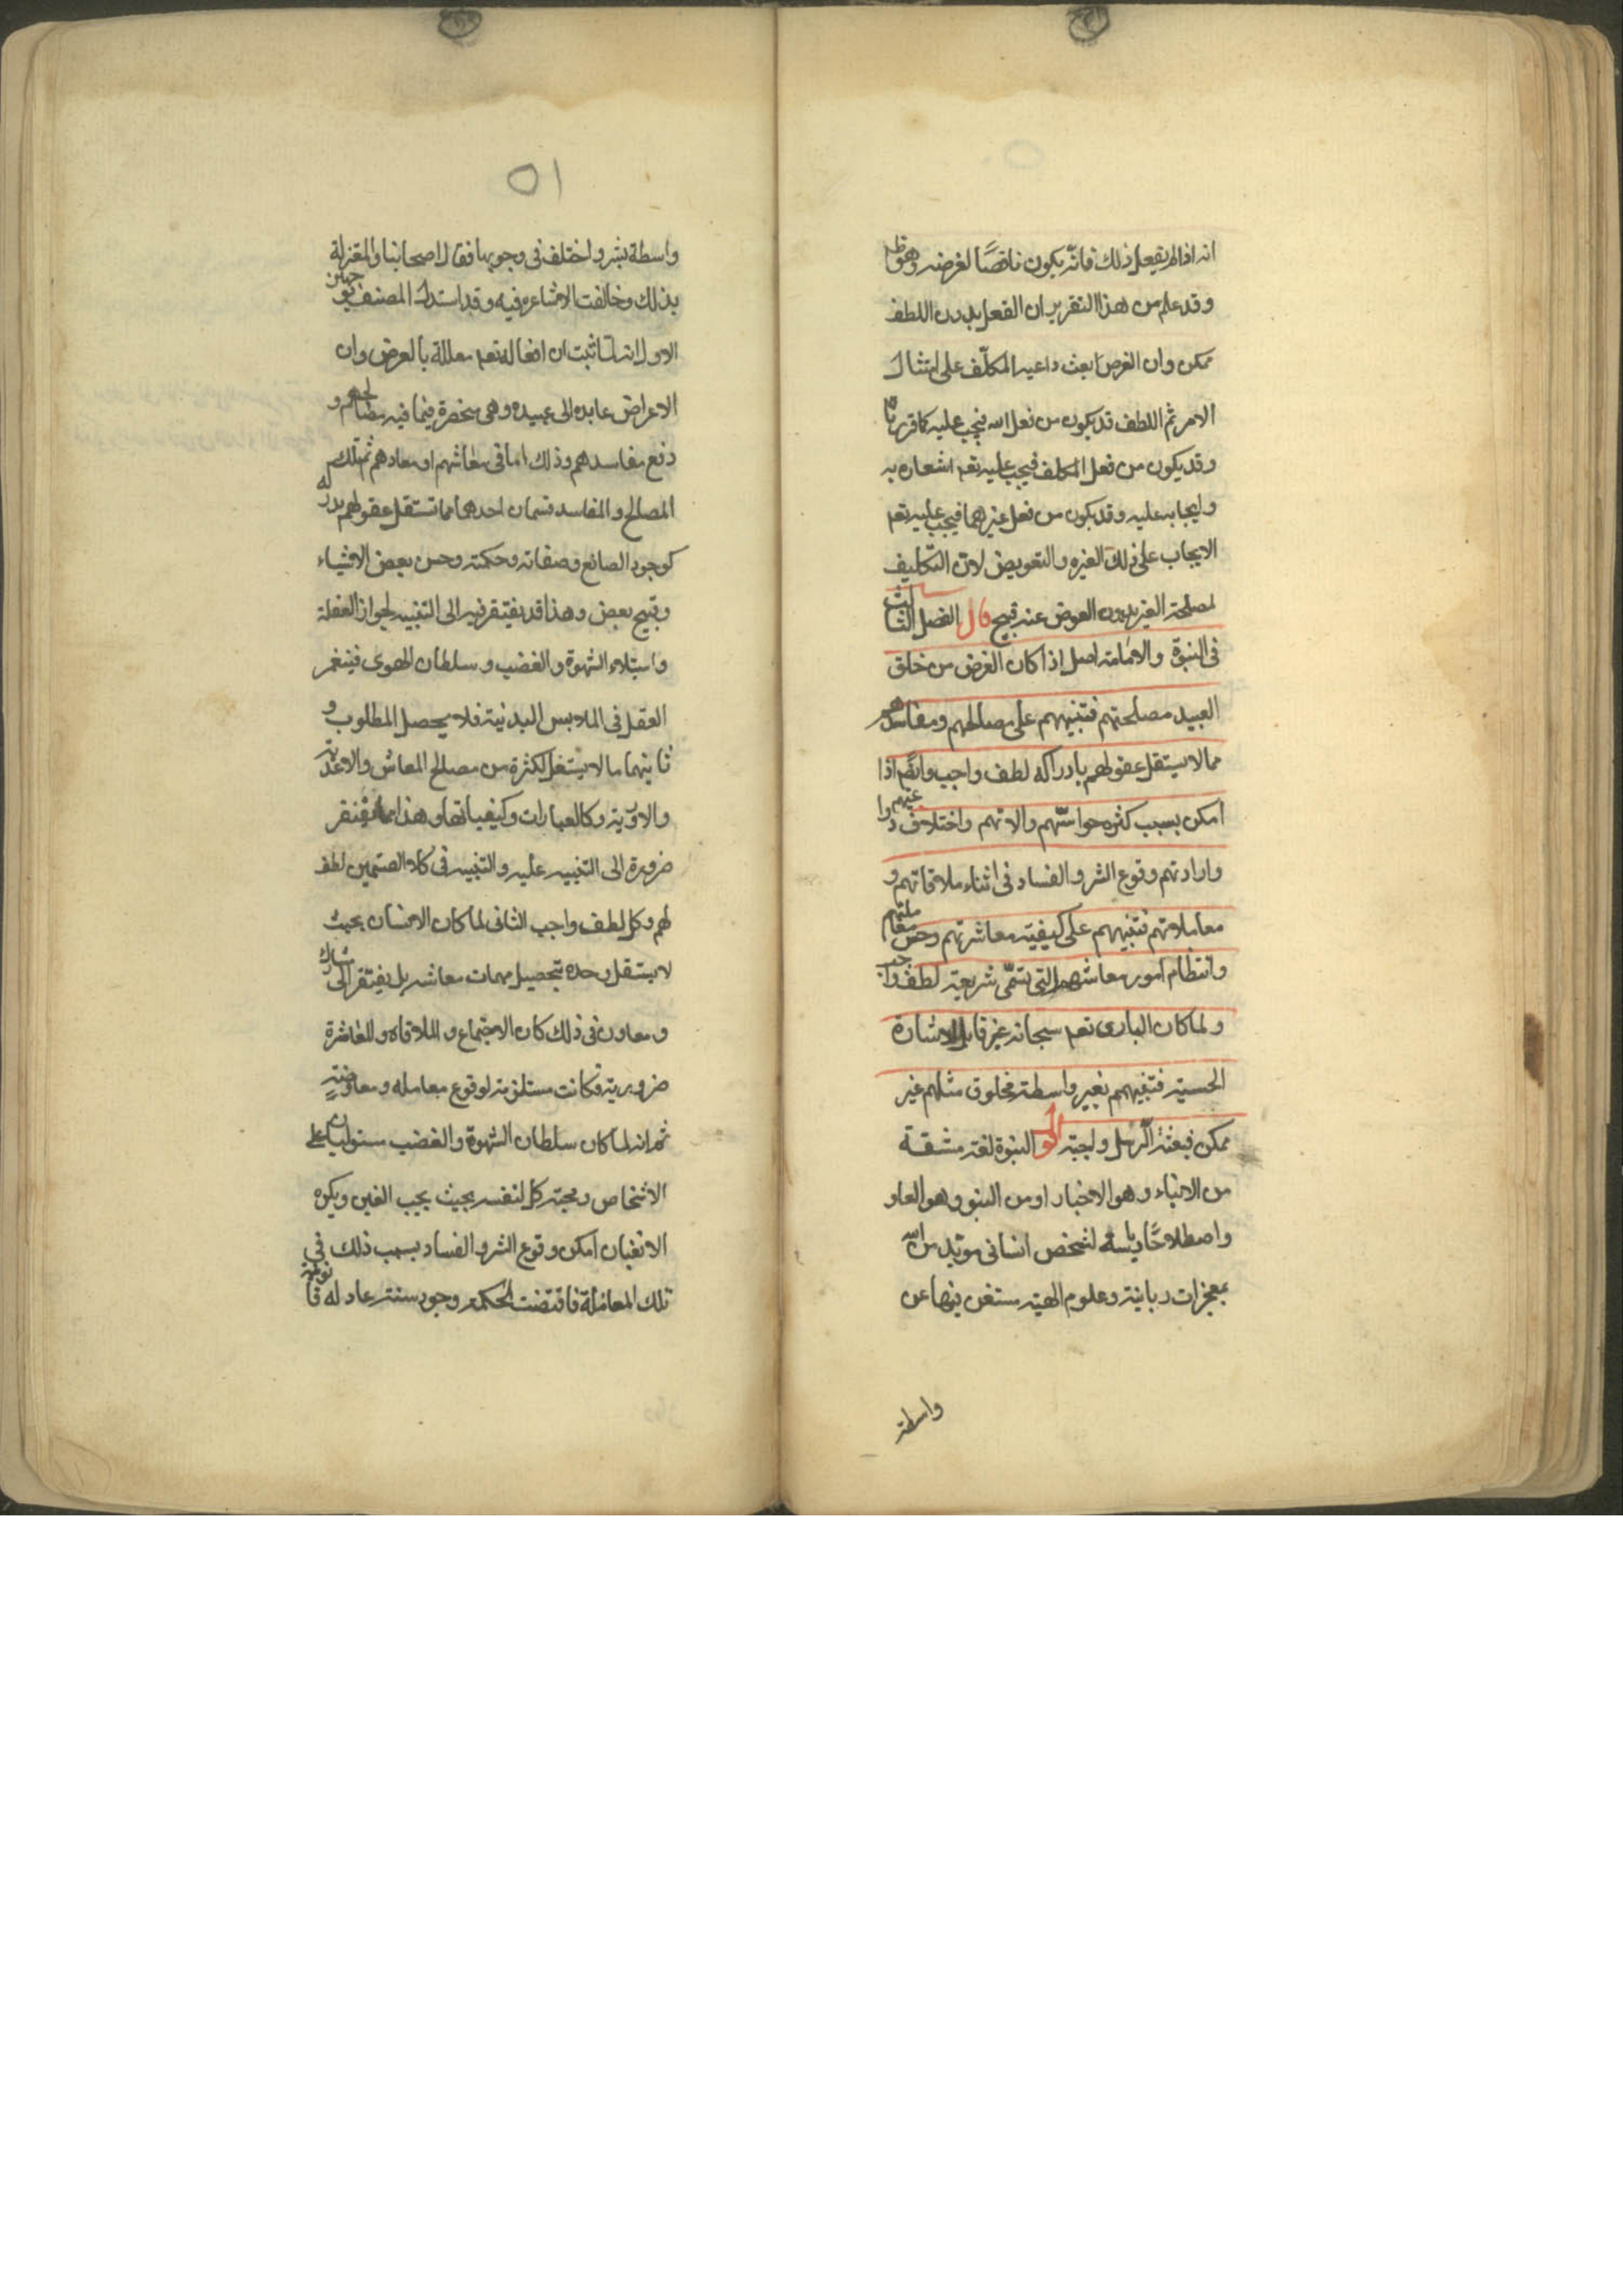 انه اذا لم يفعل ذلك فانه يكون ناقصًا لغرضه وهو
وقد علم من هذا التقرير ان الفعل بدون اللطف
ممكن وان الغرض ابعث داعيه المكلّف على امتثال
الامر ثم اللطف قد يكون من فعل الله فيجب عليه كما قررنا
وقد يكون من فعل المكلف فيجب عليه تعم اشعاره به
وايجابه عليه وقد يكون من فعل غيرهما فيجب عليه تعم
الايجاب على ذلك الغيره والتعويض لان التكليف
لمصلحة الغير بدون العوض عنه قبيح قال الفصل الثالث
فى النبوّة والامامته اصل اذا كان الغرض من خلق
العبيد مصلحتهم فتنبيههم على مصالحهم ومفاسدهم
مما لا يستقل عقولهم بادراكه لطف واجب وايضًا اذا
امكن بسبب كثره حواسّهم والاتهم واختلاف دواعيهم
واراداتهم وقوع الشر والفساد فى اثناء ملاقاتهم و
معاملاتهم فتنبيههم على كيفيته معاشرتهم وحسن معاملتهم
وانتظام امور معاشهم التى تسمّى شريعة لطف واجب
ولما كان البارى تعم سبحانه غير قابل للاشارة
الحسيته فتنبيههم بغير واسطته مخلوق مثلهم غير
ممكن فبعثة الرسل واجبة اقول النبوة لغة مشتقة
من الانباء وهو الاخبار او من النبو وهو العلو
واصطلاحًا رياسة لشخص انسانى مويّد من الله
بمعجزات ربانية وعلوم الهية مستغن فيها عن
واسطة
٥١
واسطة بشر واختلف فى وجوبها فقال اصحابنا والمعتزلة
بذلك وخالفت الاشاعره فيه وقد استدل المصنف بوجهين
الاول انه لما ثبت ان افعاله تعم معللة بالغرض وان
الاعراض عايده الى عبيده وهى منحصرة فيما فيه مصالحهم و
دفع مفاسدهم وذلك اما فى معاشهم او معادهم ثم تلك
المصالح والمفاسد قسمان احدهما ما تستقل عقولهم بدركه
كوجود الصانع وصفاته وحكمته وحسن بعض الاشياء
وقبح بعض وهذا قد يفتقر فيه الى التنبيه لجواز الغفلة
واستيلاء الشهوة والغضب وسلطان الهوى فينغمر
العقل فى الملابس البدنية فلا يحصل المطلوب و
ثانيهما ما لا يستقل لكثرة من مصالح المعاش والاغذية
والادوية وكالعبادات وكيفياتها وهذا مما يفتقر
ضرورة الى التنبيه عليه والتنبيه فى كلا القسمين لطف
لهم وكل لطف واجب الثانى لما كان الانسان بحيث
لا يستقل وحده بتحصيل مهمات معاشه بل يفتقر الى مشارك
ومعاون فى ذلك كان الاجتماع والملاقاه والمعاشرة
ضرورية فكانت مستلزمة لوقوع معامله ومعاوضة
ثم انه لما كان سلطان الشهوة والغضب مستوليان على
الاشخاص ومحبة كل لنفسه بحيث يحب الغبن ويكره
الانغبان امكن وقوع الشر والفساد بسبب ذلك فى
تلك المعاملة فاقتضت الحكمة وجود سنة عادله